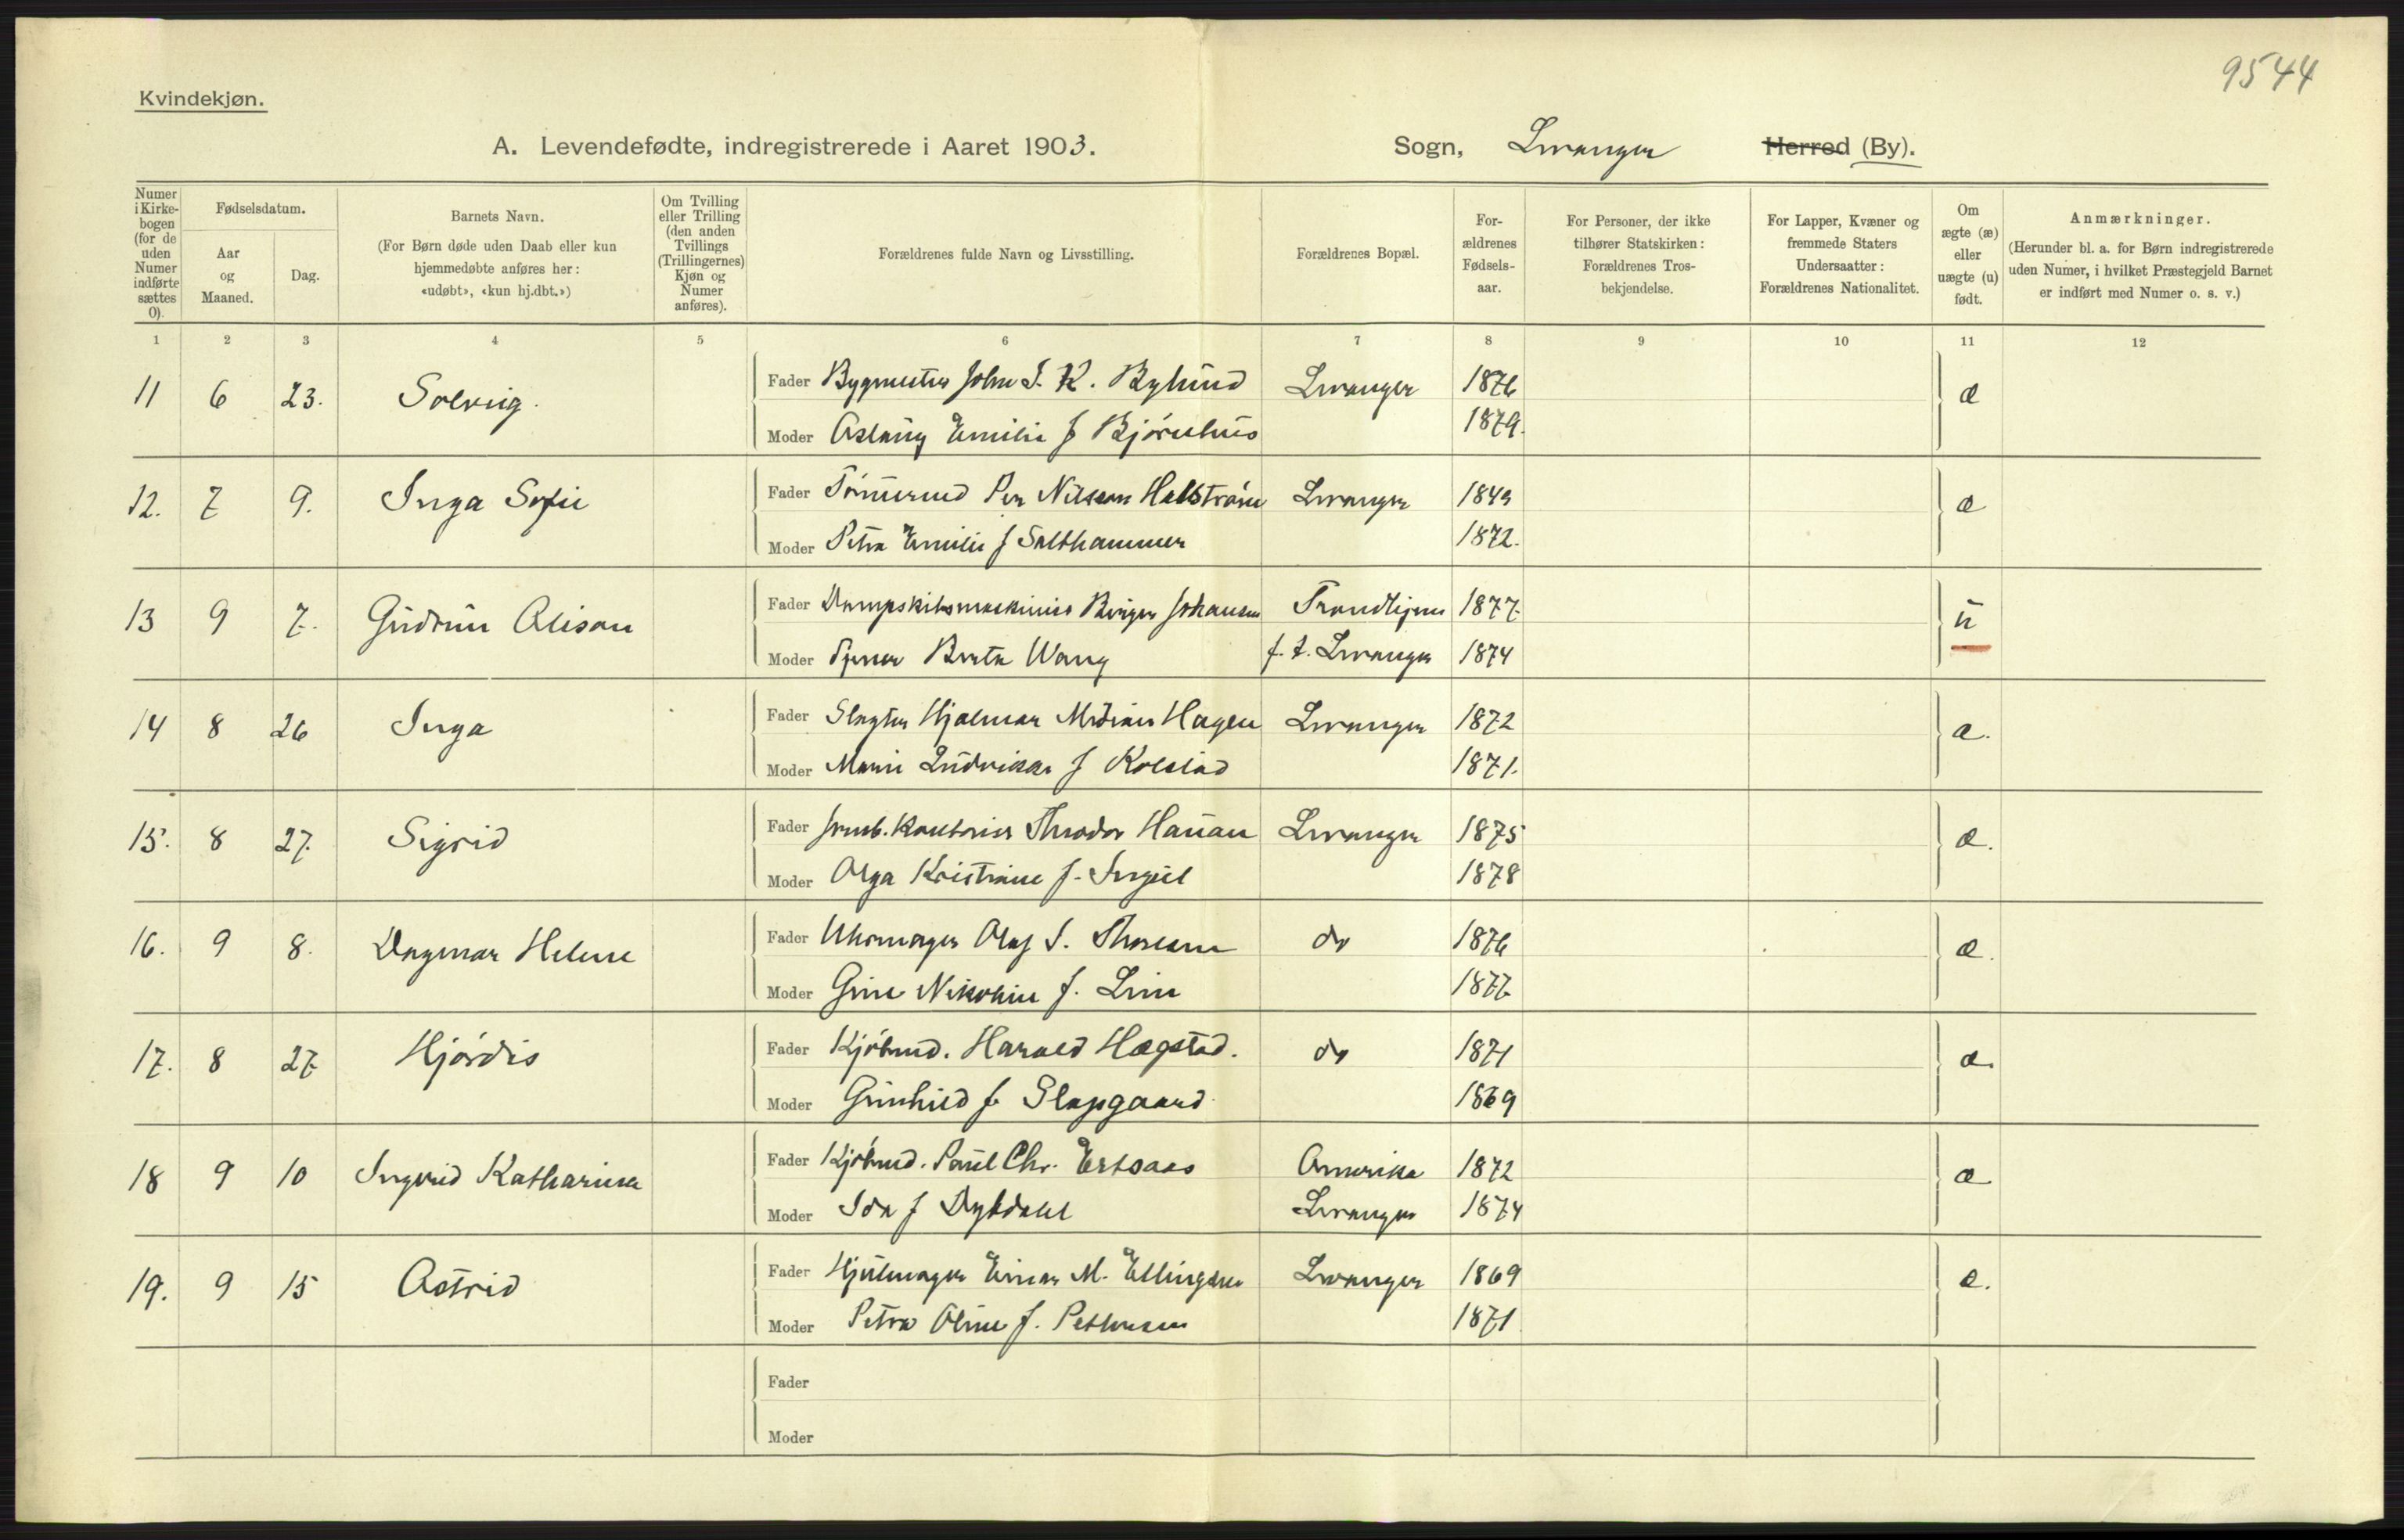 9544
Kvindekjøn.
A. Levendefødte, indregistrerede i Aaret 1903. Sogn, Levanger Herred (By).
Numer i Kirkebogen (for de uden Numer indførte sættes 0).
Fødselsdatum.
Aar og Maaned.
Dag.
Barnets Navn.
(For Børn døde uden Daab eller kun hjemmedøbte anføres her: «udøbt», «kun hj.dbt.»)
Om Tvilling eller Trilling (den anden Tvillings (Trillingernes) Kjøn og Numer anføres).
Forældrenes fulde Navn og Livsstilling.
Forældrenes Bopæl.
Forældrenes Fødselsaar.
For Personer, der ikke tilhører Statskirken: Forældrenes Trosbekjendelse.
For Lapper, Kvæner og fremmede Staters Undersaatter: Forældrenes Nationalitet.
Om ægte (æ) eller uægte (u) født.
Anmærkninger.
(Herunder bl. a. for Børn indregistrerede uden Numer, i hvilket Præstegjeld Barnet er indført med Numer o. s. v.)
1 2 3 4 5 6 7 8 9 10 11 12
11 6 23. Solveig. Fader Bygmester John I. K. Bylund Levanger 1876 æ
Moder Aslaug Emilie f Bjørnhus 1879.
12. 7 9. Inga Sofie Fader Tømmermd Per Nilsson Hallstrøm Levanger 1849 æ
Moder Petra Emilie f Salthammer 1872.
13 9 7. Gudrun Alison Fader Dampskibsmaskinist Birger Johansen Trondhjem 1877 u
Moder Berta Wang f. t. Levanger 1874
14 8 26 Inga Fader Slagter Hjalmar Hagen Levanger 1872 æ.
Moder Marie Ludvikka f Kolstad 1871.
15. 8 27. Sigrid Fader Jernb. Kontorist Theodor Hanan Levanger 1875 æ.
Moder Olga Kristiane f. 1878
16. 9 8. Dagmar Helene Fader Uhrmager Olaf S. Thoresen do 1876 æ.
Moder Gine Nikoline f. Lein 1877
17. 8 27 Hjørdis Fader Kjøbmd. Harald Hægstad. do 1871 æ.
Moder Gunhild f. Slapgaard 1869
18 9 10 Ingrid Katharina Fader Kjøbmd. Paul Chr. Ertsaas Amerika 1872 æ
Moder Ida f Dybdahl Levanger 1874
19. 9 15 Astrid Fader Hjulmager Einar M. Ellingsen Levanger 1869 æ.
Moder Petra Oline f. Pettersen 1871
Fader
Moder